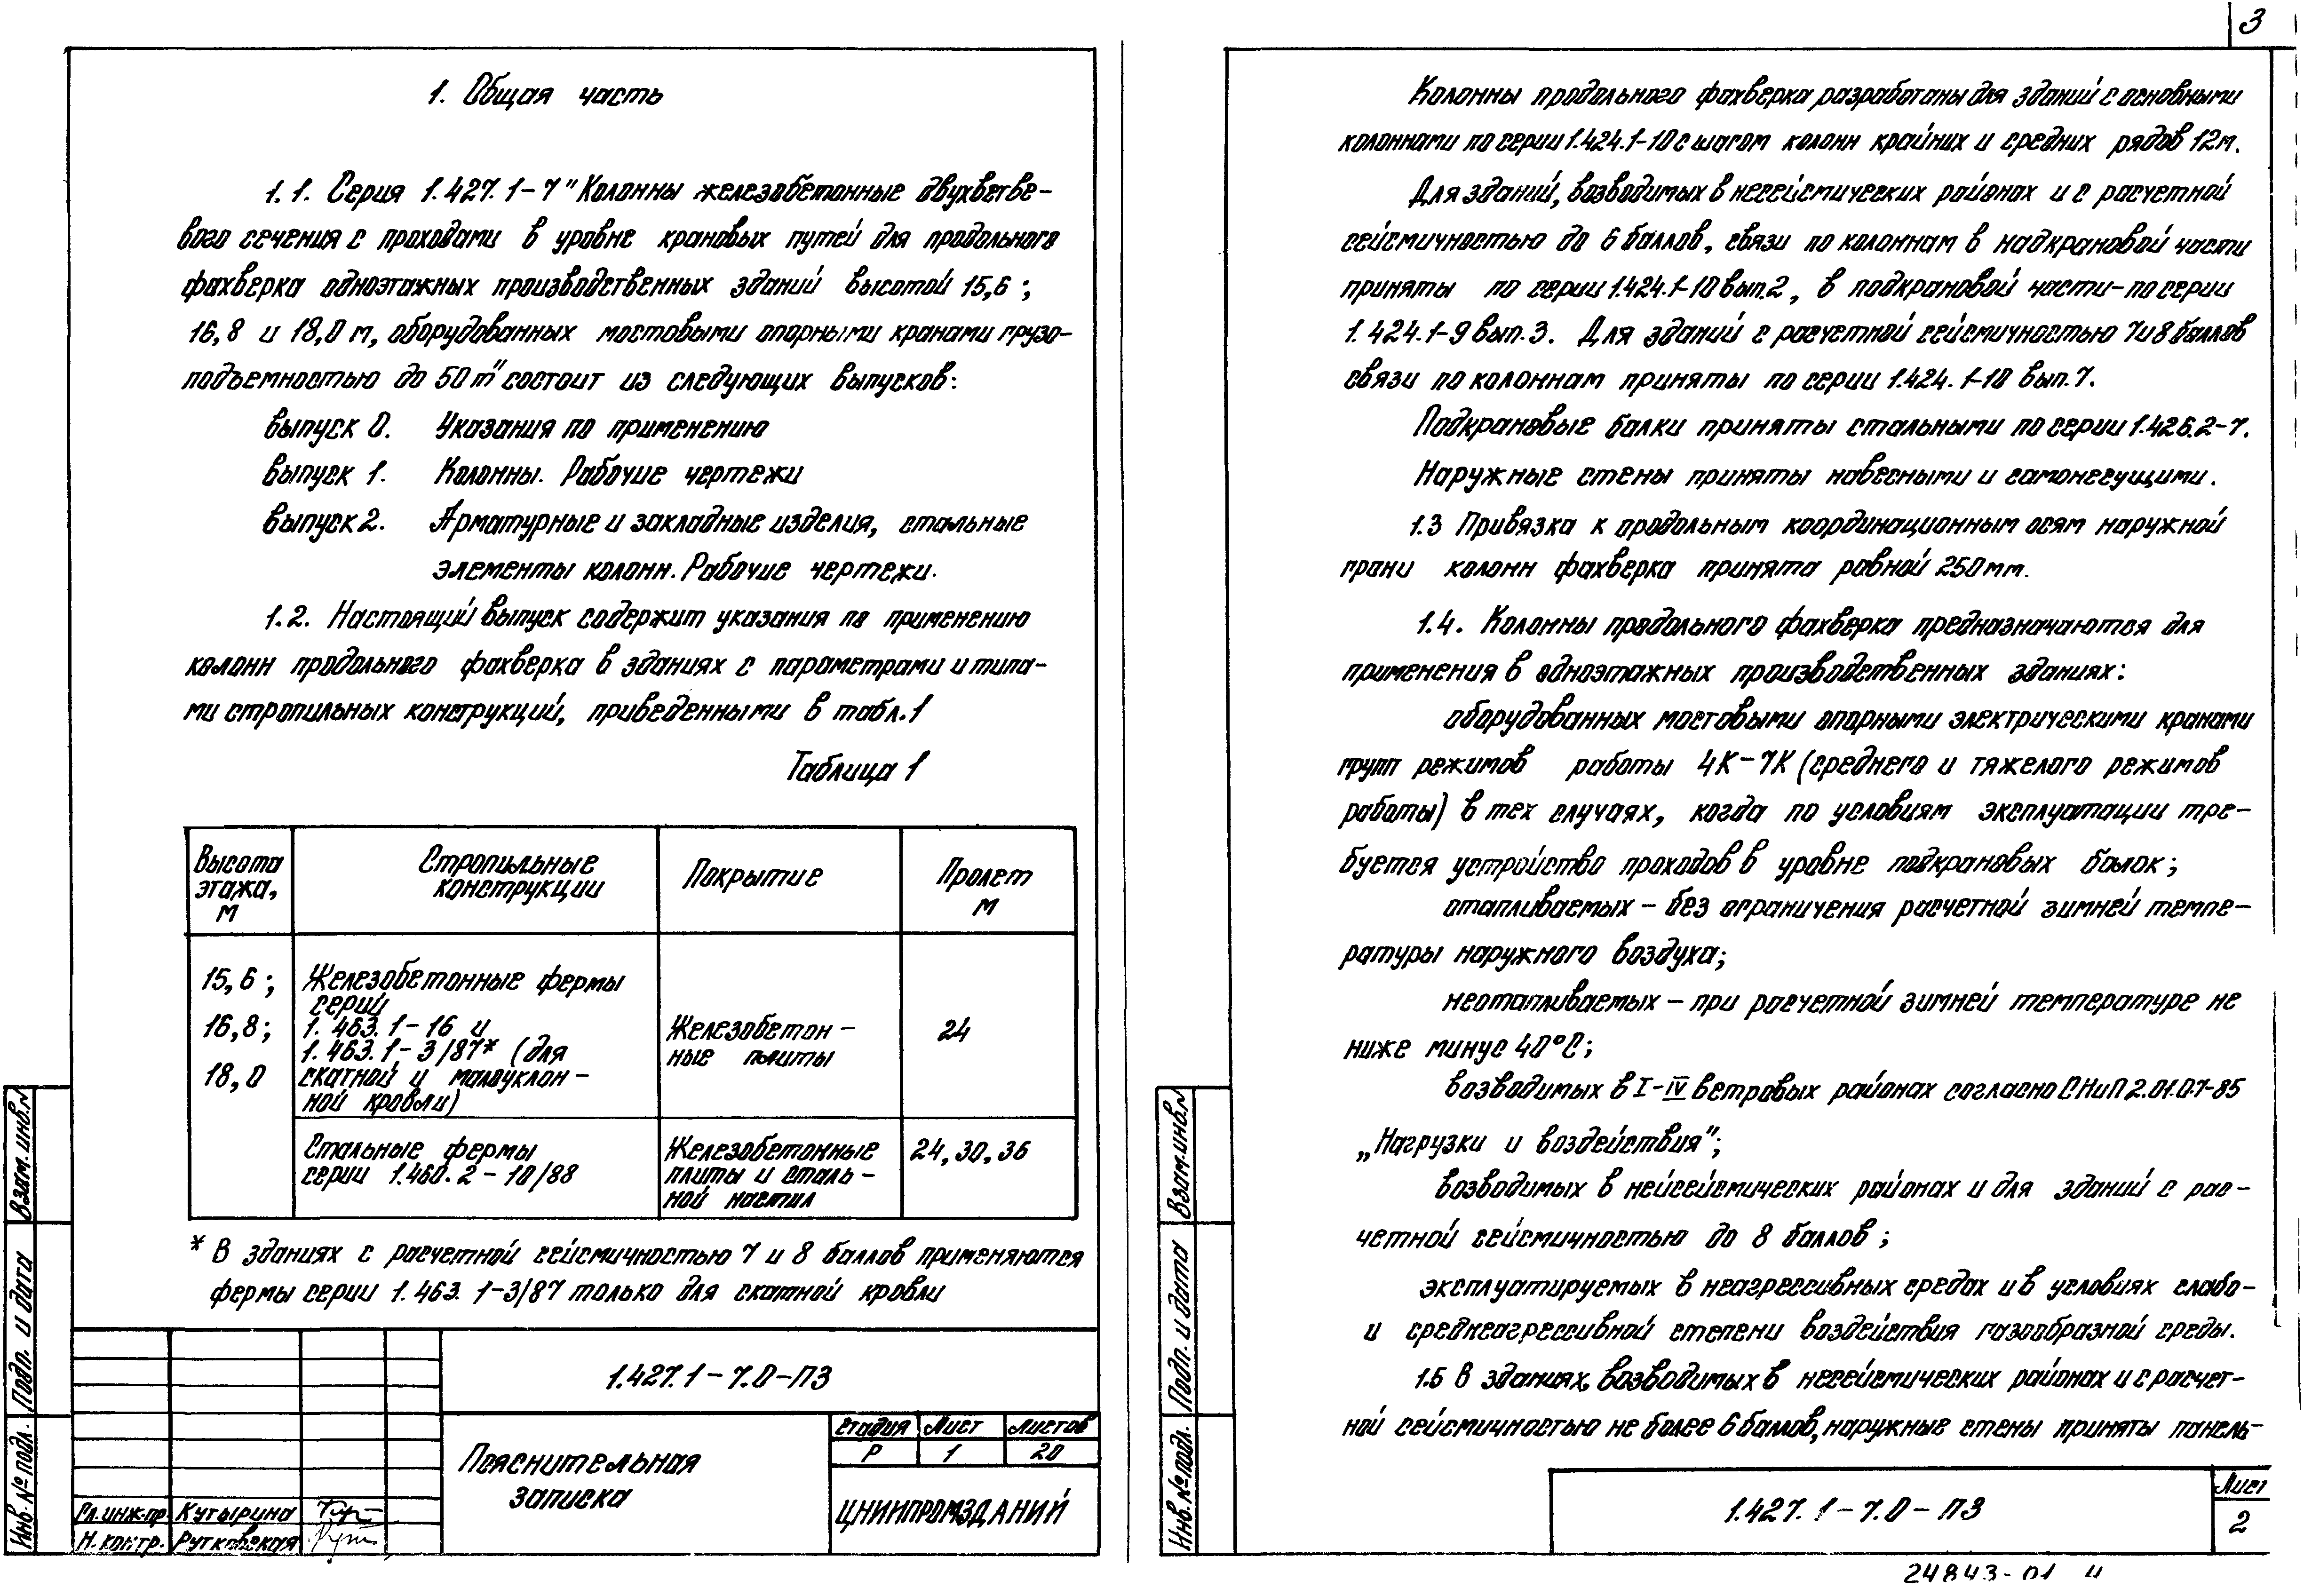 1. Общая часть
1.1. Серия 1.427.1-7 "Колонны железобетонные двухветве-
вого сечения с проходами в уровне крановых путей для продольного
фахверка одноэтажных производственных зданий высотой 15,6;
16,8 и 18,0 м, оборудованных мостовыми опорными кранами грузо-
подъемностью до 50 т" состоит из следующих выпусков:
выпуск 0. Указания по применению
выпуск 1. Колонны. Рабочие чертежи
выпуск 2. Арматурные и закладные изделия, стальные
элементы колонн. Рабочие чертежи.
1.2. Настоящий выпуск содержит указания по применению
колонн продольного фахверка в зданиях с параметрами и типа-
ми стропильных конструкций, приведенными в табл.1
Таблица 1
Высота этажа, м
Стропильные конструкции
Покрытие
Пролет м
15,6;
16,8;
18,0
Железобетонные фермы
серий
1.463.1-16 и
1.463.1-3/87* (для
скатной и малоуклон-
ной кровли)
Железобетон-
ные плиты
24
Стальные фермы
серии 1.460.2-10/88
Железобетонные
плиты и сталь-
ной настил
24, 30, 36
* В зданиях с расчетной сейсмичностью 7 и 8 баллов применяются
фермы серии 1.463.1-3/87 только для скатной кровли
1.427.1-7.0-ПЗ
Пояснительная
записка
Стадия Лист Листов
Р 1 20
ЦНИИПРОМЗДАНИЙ
Гл. инж. пр. Кутырина
Н. контр. Рутковская
Взам. инв. №
Подп. и дата
Инв. № подл.
3
Колонны продольного фахверка разработаны для зданий с основными
колоннами по серии 1.424.1-10 с шагом колонн крайних и средних рядов 12м.
Для зданий, возводимых в несейсмических районах и с расчетной
сейсмичностью до 6 баллов, связи по колоннам в надкрановой части
приняты по серии 1.424.1-10 вып.2, в подкрановой части - по серии
1.424.1-9 вып.3. Для зданий с расчетной сейсмичностью 7 и 8 баллов
связи по колоннам приняты по серии 1.424.1-10 вып.7.
Подкрановые балки приняты стальными по серии 1.426.2-7.
Наружные стены приняты навесными и самонесущими.
1.3 Привязка к продольным координационным осям наружной
грани колонн фахверка принята равной 250 мм.
1.4. Колонны продольного фахверка предназначаются для
применения в одноэтажных производственных зданиях:
оборудованных мостовыми опорными электрическими кранами
групп режимов работы 4К-7К (среднего и тяжелого режимов
работы) в тех случаях, когда по условиям эксплуатации тре-
буется устройство проходов в уровне подкрановых балок;
отапливаемых - без ограничения расчетной зимней темпе-
ратуры наружного воздуха;
неотапливаемых - при расчетной зимней температуре не
ниже минус 40°С;
возводимых в I-IV ветровых районах согласно СНиП 2.01.07-85
„Нагрузки и воздействия";
возводимых в нейсейсмических районах и для зданий с рас-
четной сейсмичностью до 8 баллов;
эксплуатируемых в неагрессивных средах и в условиях слабо-
и среднеагрессивной степени воздействия газообразной среды.
1.5 В зданиях, возводимых в несейсмических районах и с расчет-
ной сейсмичностью не более 6 баллов, наружные стены приняты панель-
1.427.1-7.0-ПЗ
Лист
2
Взам. инв. №
Подп. и дата
Инв. № подл.
24843-01 4